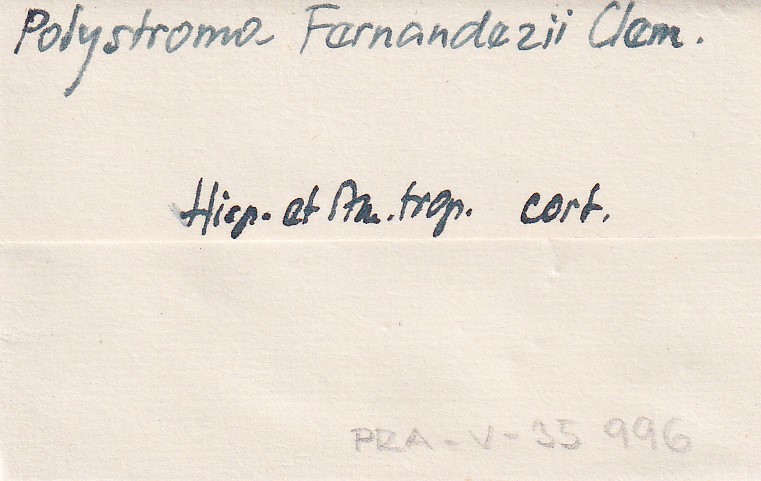 Polystroma Fernandezii Clem.
Hisp. et Am. trop. cort.
PRA-V-35 996